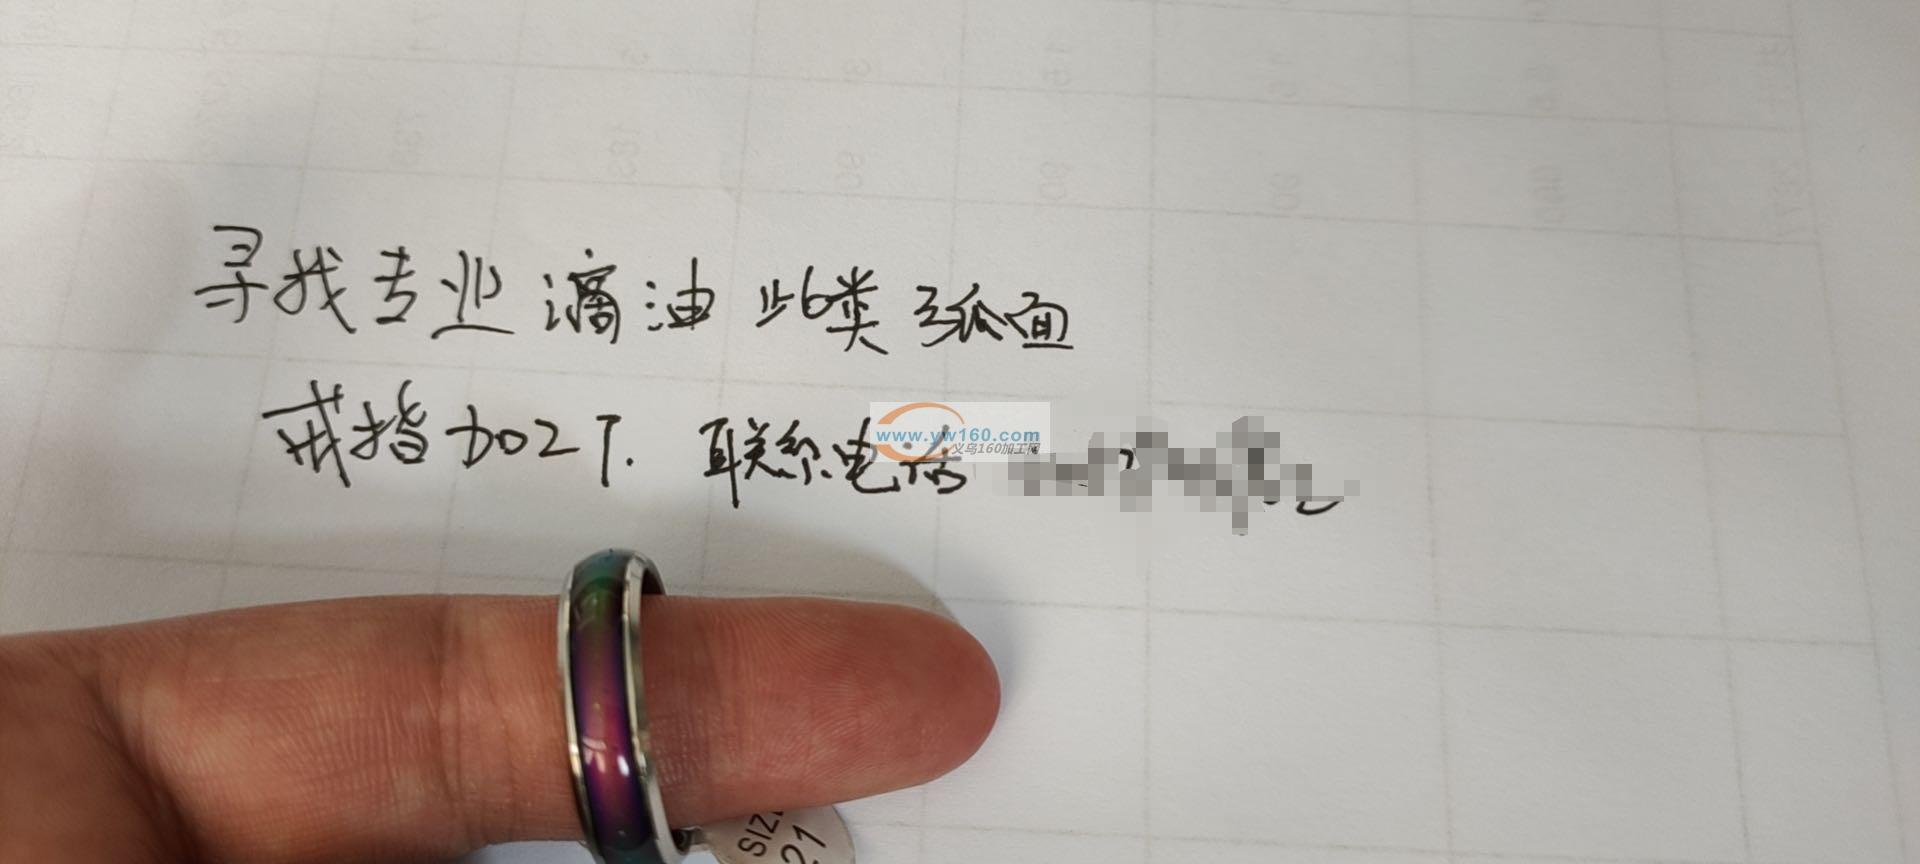 寻找专业滴油此类弧面
戒指加工厂.联系电话
www.yw160.com
义乌160加工网
SIZ
21